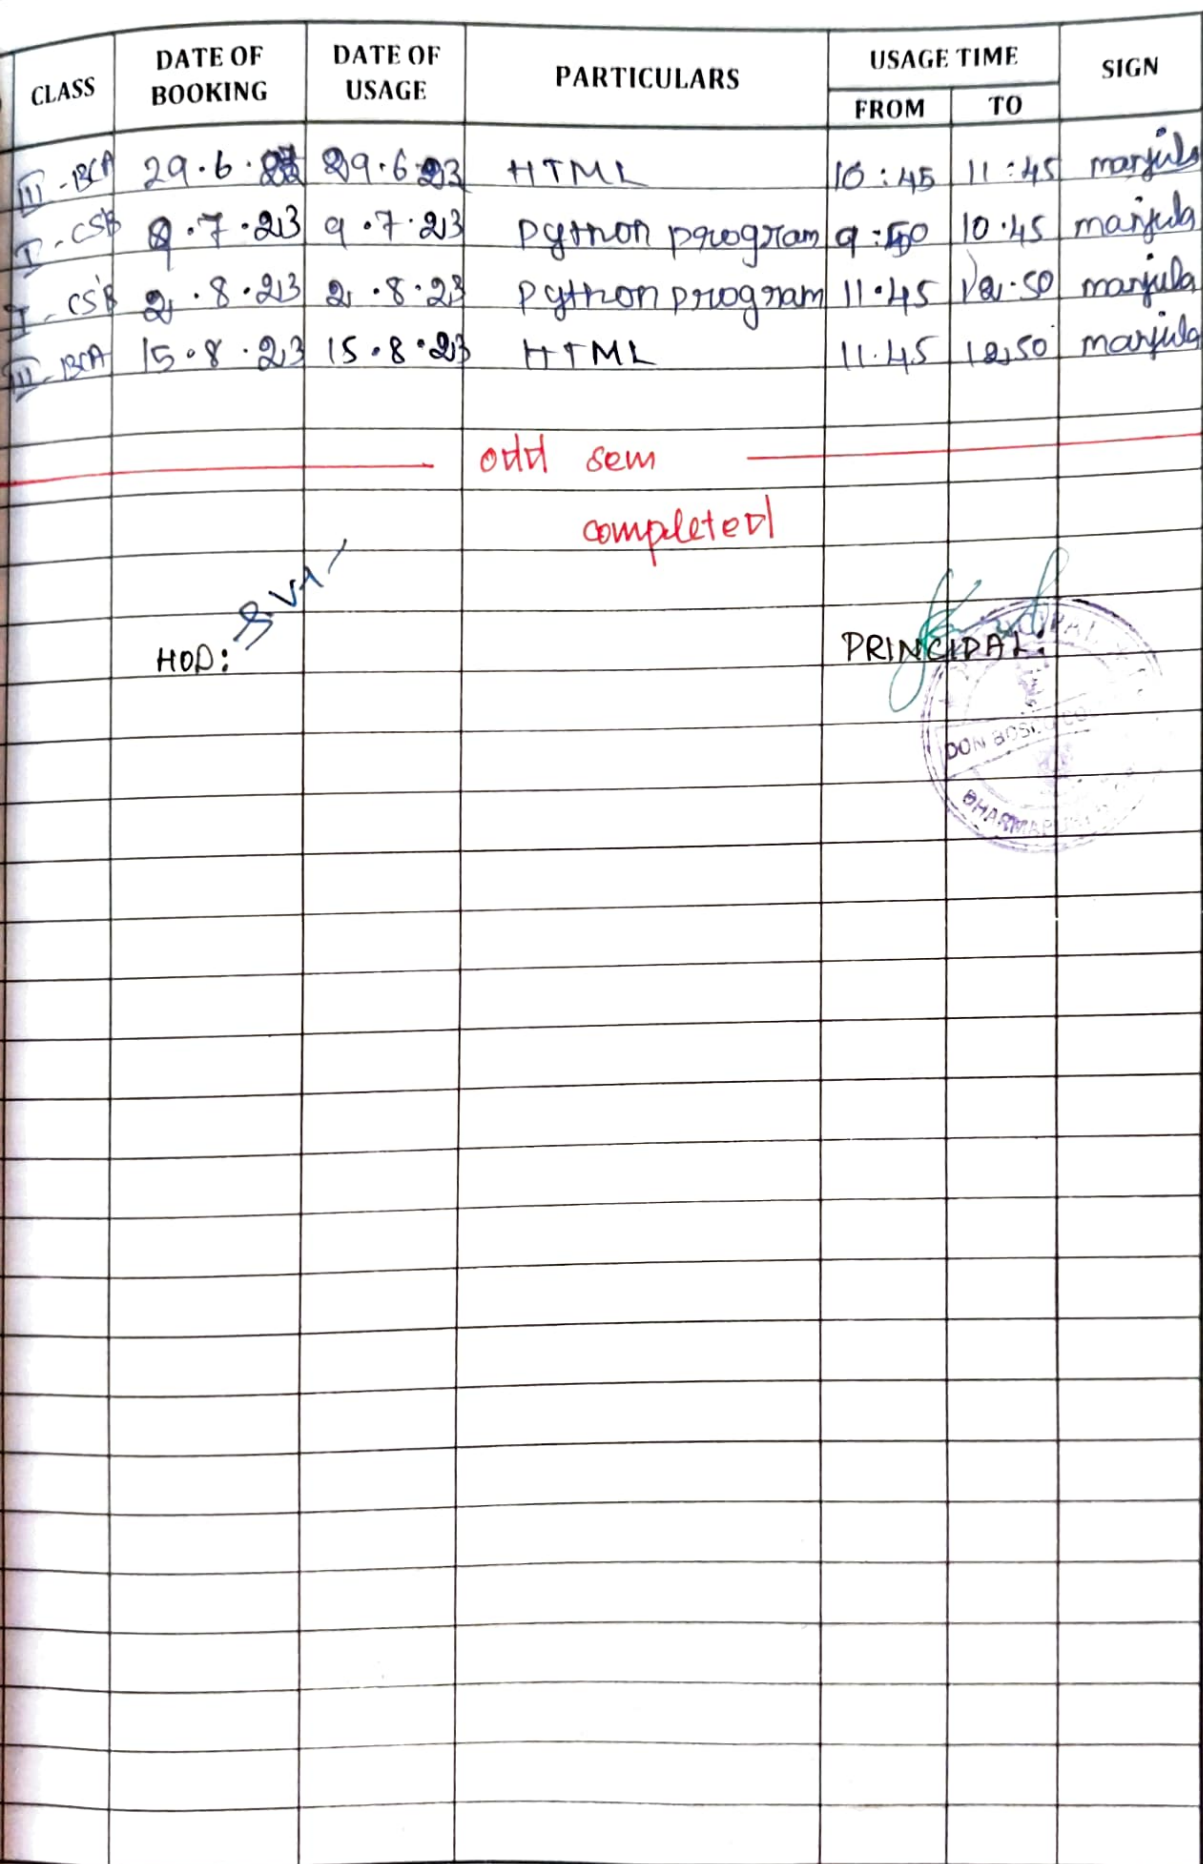 CLASS DATE OF BOOKING DATE OF USAGE PARTICULARS USAGE TIME SIGN
FROM TO
III - BCA 29.6. 29.6.23 HTML 10:45 11:45 manjula
I - CS'B 9.7.23 9.7.23 python program 9:50 10.45 manjula
I - CS'B 2.8.23 2.8.23 python program 11.45 12.50 manjula
III - BCA 15.8.23 15.8.23 HTML 11.45 12.50 manjula
odd sem
completed
HOD:
PRINCIPAL:
DON BOSCO CO
DHARMAPURI